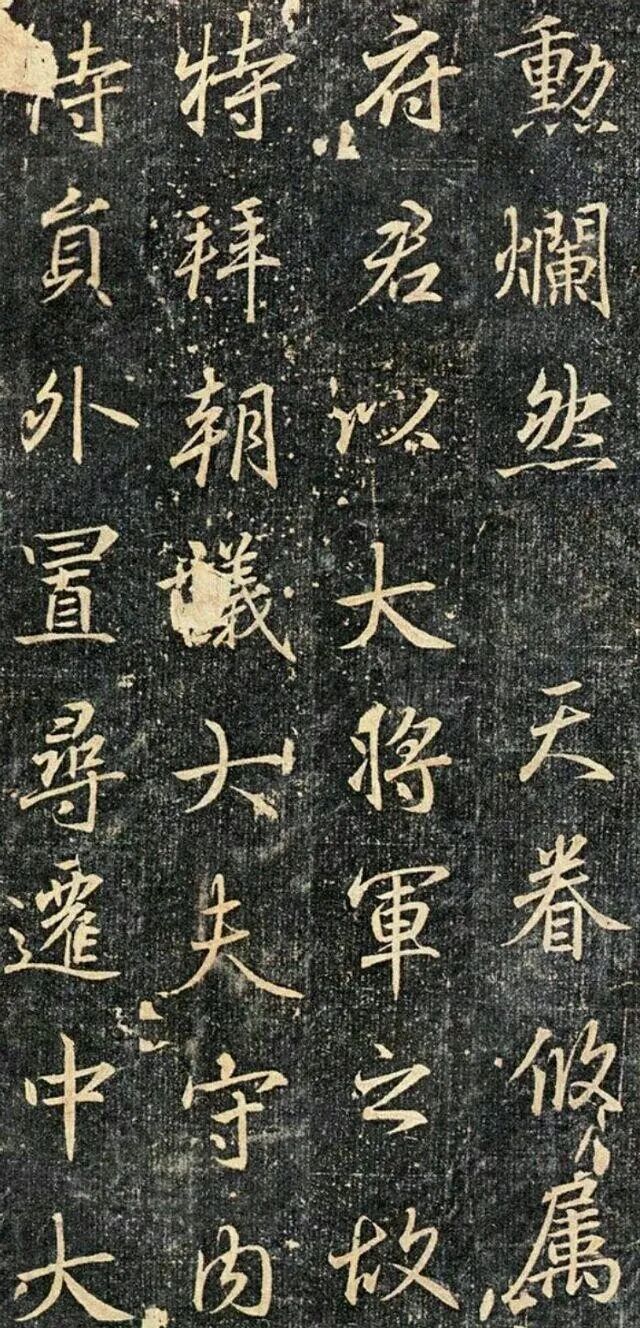 勳爛然 天眷攸属
府君以大將軍之故
特拜朝議大夫守内
侍員外置尋遷中大